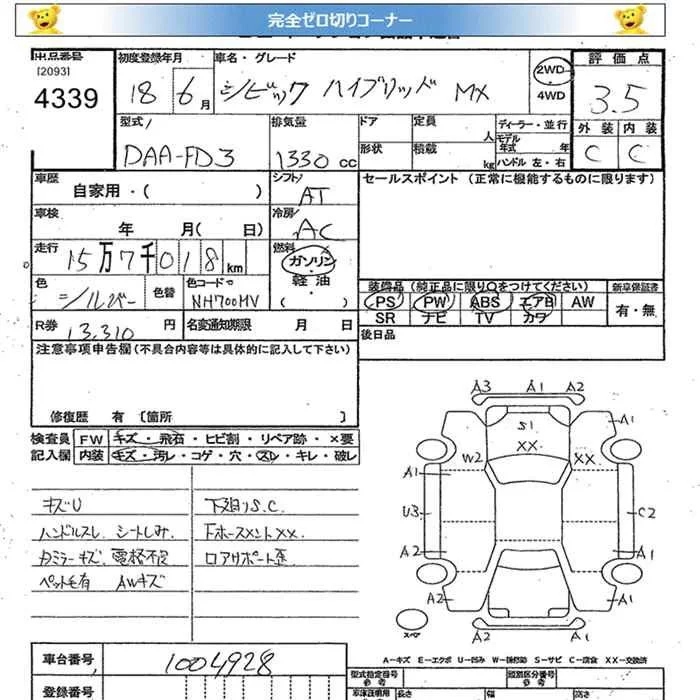 完全ゼロ切りコーナー
出品番号
[2093]
4339
初度登録年月
18 6月
車名・グレード
シビック ハイブリッド MX
2WD
4WD
評価点
3.5
外装 内装
C C
型式
DAA-FD3
排気量
1330 cc
ドア
形状
定員 人
積載 kg
ディーラー・並行
モデル年式 年
ハンドル 左・右
車歴
自家用・( )
シフト
AT
セールスポイント (正常に機能するものに限ります)
車検
年 月( 日)
冷房
AC
走行
15万7千018km
燃料
ガソリン
軽油
( )
色
シルバー
色替
色コードNo
NH700MV
装備品(純正品に限り○をつけてください)
PS PW ABS エアB AW
SR ナビ TV カワ
新車保証書
有・無
R券
13,310 円
名変通知期限 月 日
後日品
注意事項申告欄(不具合内容等は具体的に記入して下さい)
修復歴 有 [箇所 ]
検査員記入欄
FW キズ・飛石・ヒビ割・リペア跡・×要
内装 キズ・汚レ・コゲ・穴・スレ・キレ・破レ
キズU
ハンドルスレ シートしみ
ペット毛有 AWキズ
下廻りS.C.
ロアサポート歪
A3 A1 A2
S1
A1
XX
W2 XX
A1
U3 C2
A2 A1
A2 A1
スペア
A2 A1
A-キズ E-エクボ U-凹み W-補修跡 S-サビ C-腐食 XX-交換済
車台番号
1004928
登録番号
型式指定番号
参考
類別区分番号
参考
長さ 幅 高さ